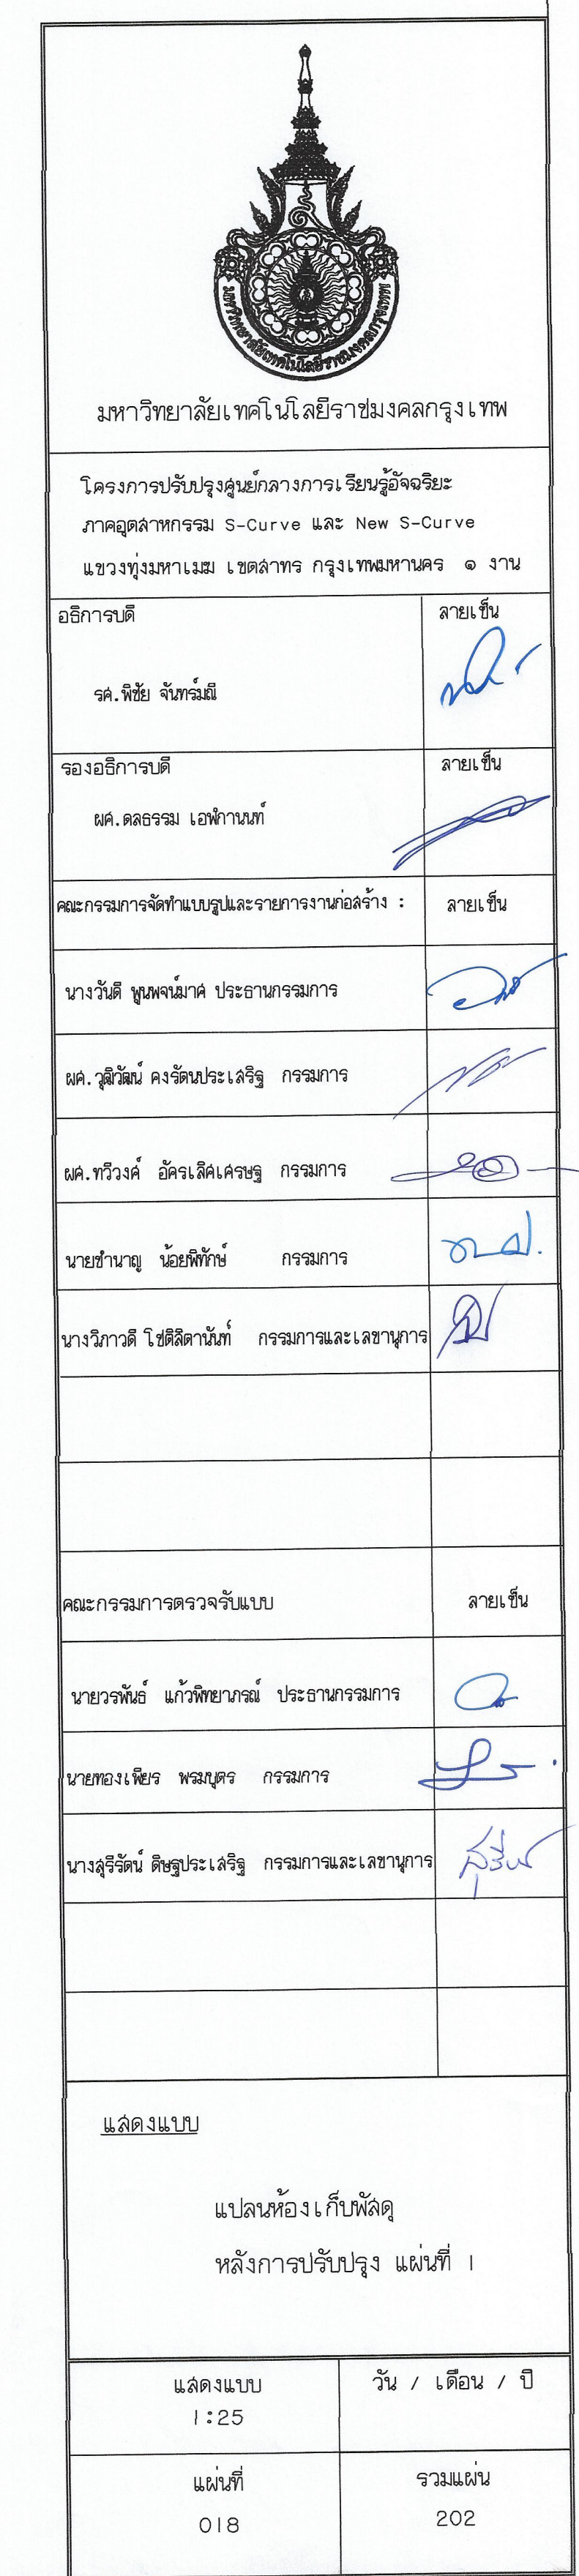 มหาวิทยาลัยเทคโนโลยีราชมงคลกรุงเทพ
มหาวิทยาลัยเทคโนโลยีราชมงคลกรุงเทพ
โครงการปรับปรุงศูนย์กลางการเรียนรู้อัจฉริยะ
ภาคอุตสาหกรรม S-Curve และ New S-Curve
แขวงทุ่งมหาเมฆ เขตสาทร กรุงเทพมหานคร ๑ งาน
อธิการบดี ลายเซ็น
รศ.พิชัย จันทร์มณี
รองอธิการบดี ลายเซ็น
ผศ.ดลธรรม เอฬกานนท์
คณะกรรมการจัดทำแบบรูปและรายการงานก่อสร้าง : ลายเซ็น
นางวันดี พูนพจน์มาศ ประธานกรรมการ
ผศ.วุฒิวัฒน์ คงรัตนประเสริฐ กรรมการ
ผศ.ทวีวงศ์ อัครเลิศเศรษฐ กรรมการ
นายชำนาญ น้อยพิทักษ์ กรรมการ
นางวิภาวดี โชติลิตานันท์ กรรมการและเลขานุการ
คณะกรรมการตรวจรับแบบ ลายเซ็น
นายวรพันธ์ แก้วพิทยาภรณ์ ประธานกรรมการ
นายทองเพียร พรมบุตร กรรมการ
นางสุรีรัตน์ ดิษฐประเสริฐ กรรมการและเลขานุการ
แสดงแบบ
แปลนห้องเก็บพัสดุ
หลังการปรับปรุง แผ่นที่ 1
แสดงแบบ วัน / เดือน / ปี
1:25
แผ่นที่ รวมแผ่น
018 202